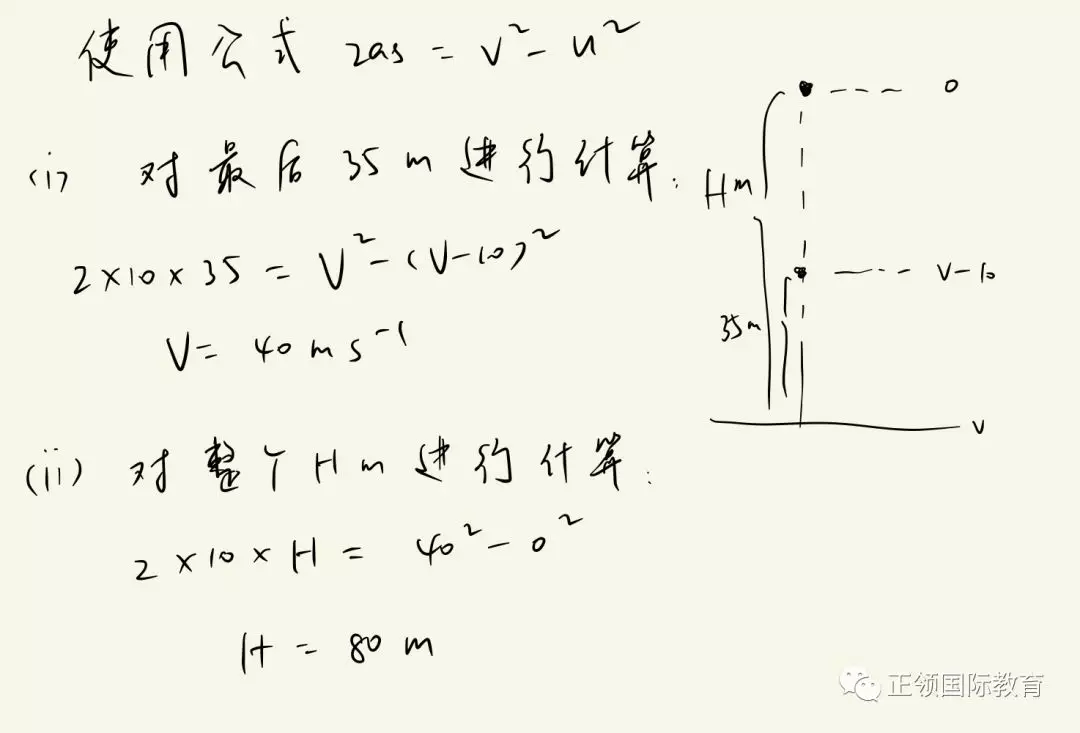 使用公式 2as = v² - u²
(i) 对最后 35 m 进行计算:
2 × 10 × 35 = V² - (V-10)²
V = 40 m s⁻¹
(ii) 对整个 H m 进行计算:
2 × 10 × H = 40² - 0²
H = 80 m
0
H m
V-10
35m
V
正领国际教育